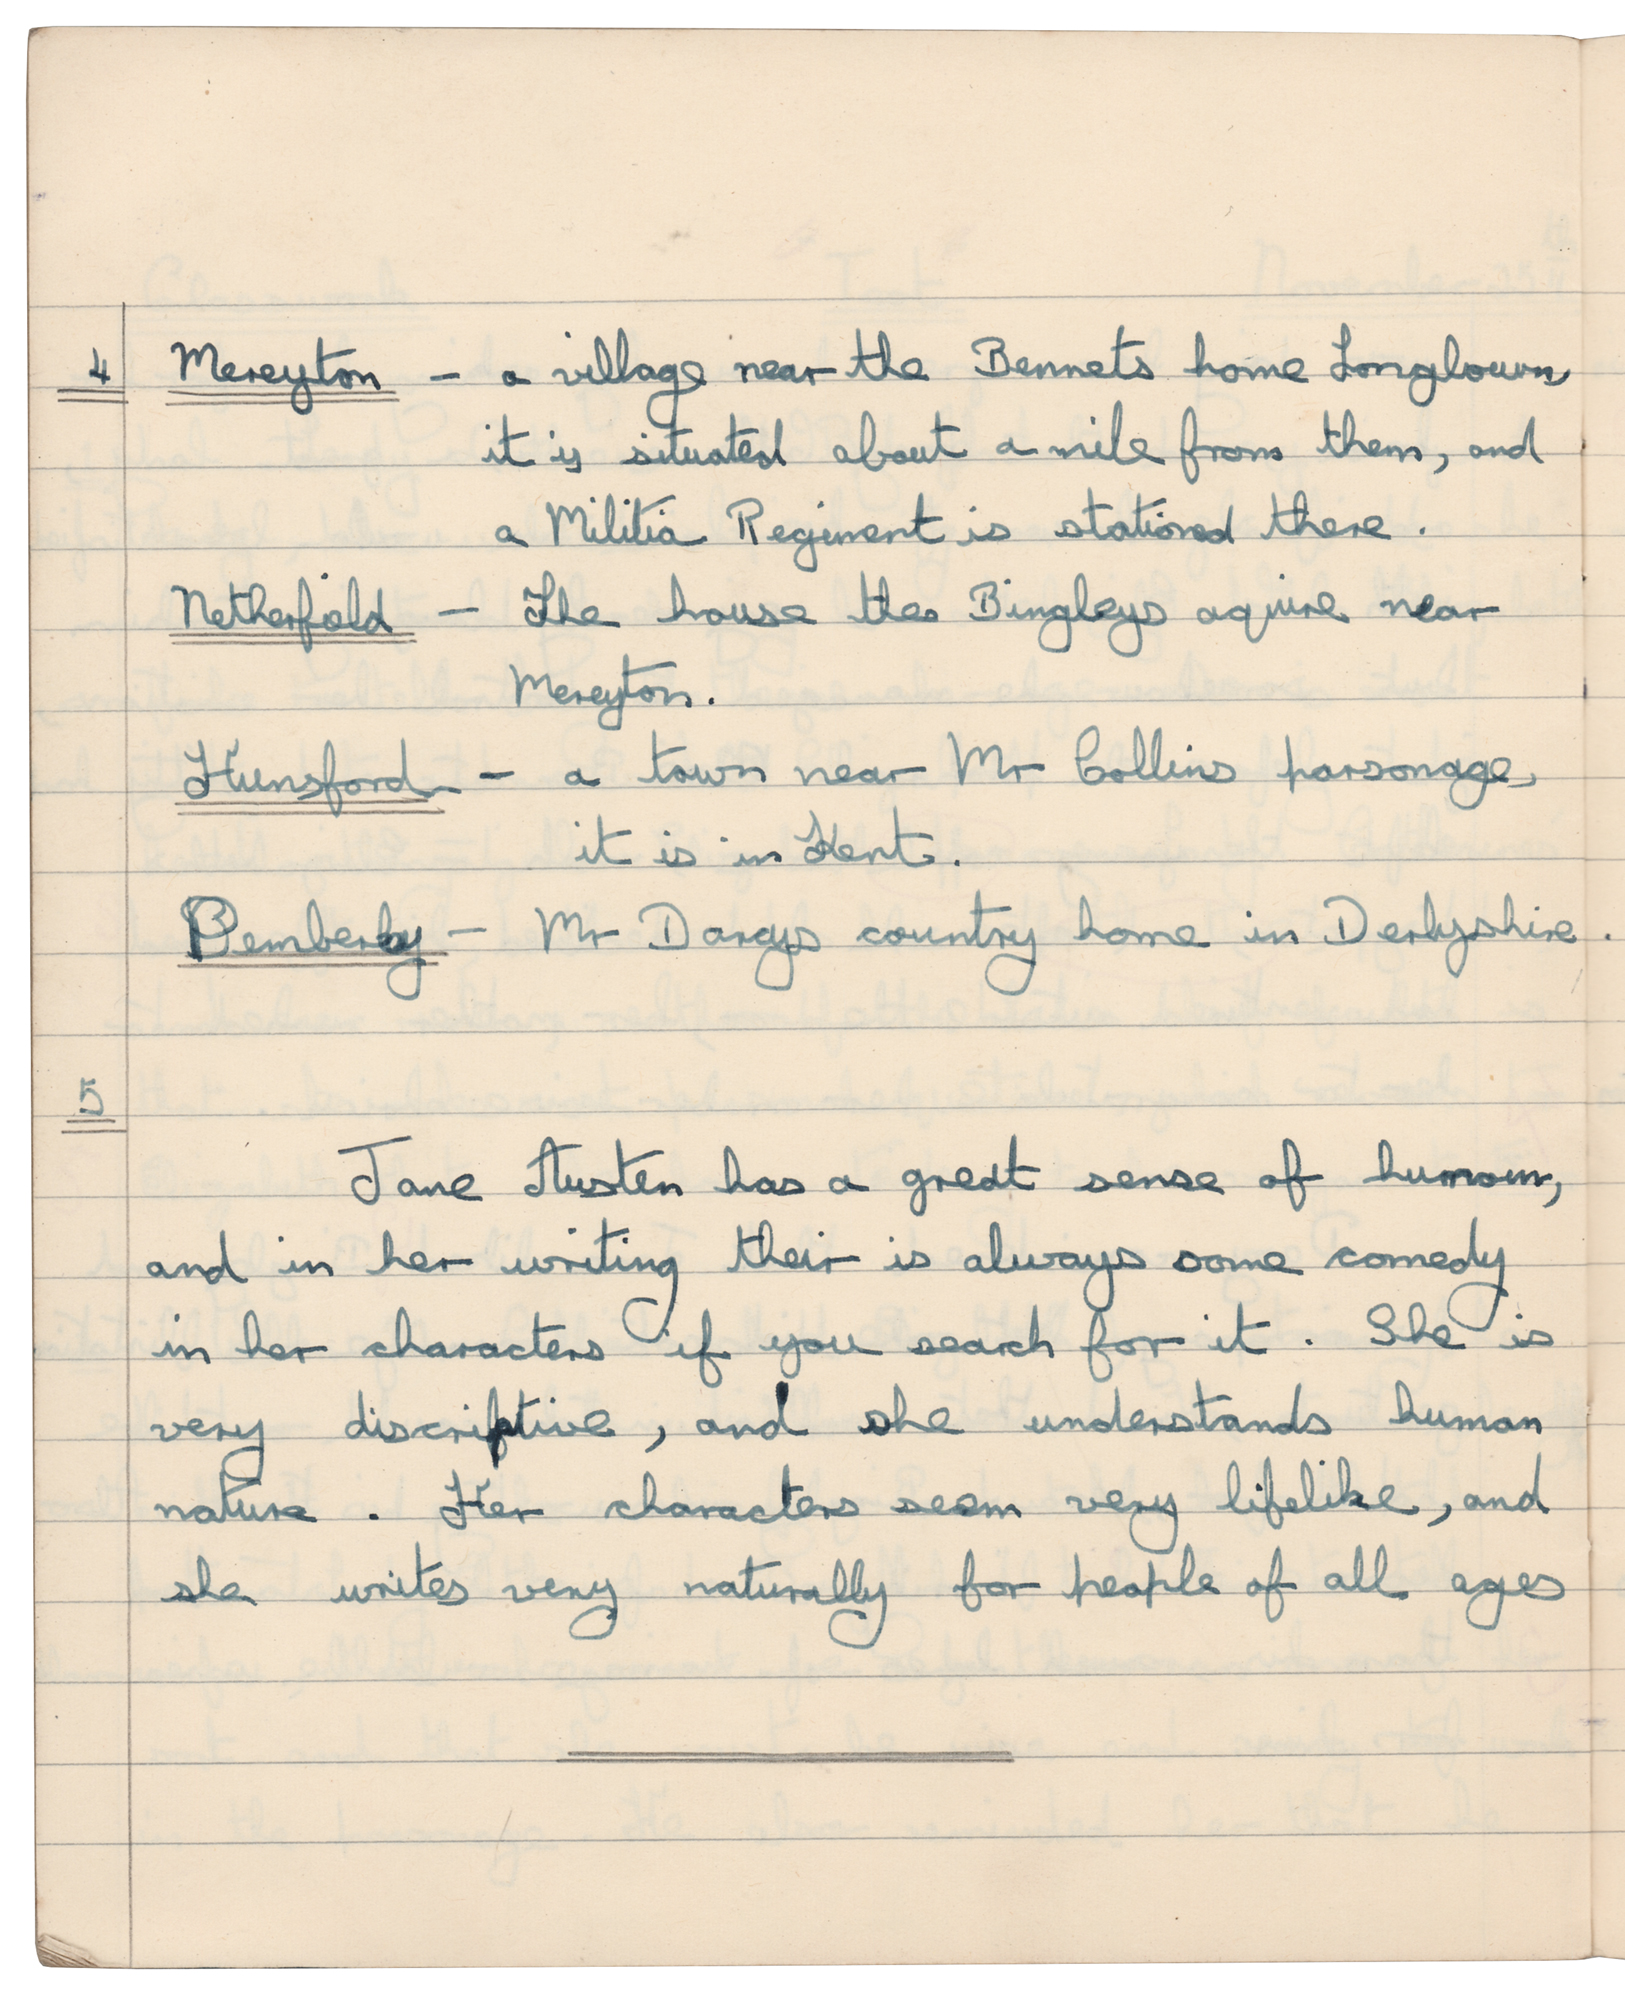 4 Mereyton - a village near the Bennets home Longbourn,
it is situated about a mile from them, and
a Militia Regiment is stationed there.
Netherfield - The house the Bingleys aquire near
Mereyton.
Hunsford - a town near Mr Collins parsonage,
it is in Kent.
Pemberley - Mr Darcys country home in Derbyshire.
5
Jane Austen has a great sense of humour,
and in her writing their is always some comedy
in her characters if you search for it. She is
very discriptive, and she understands human
nature. Her characters seem very lifelike, and
she writes very naturally for people of all ages